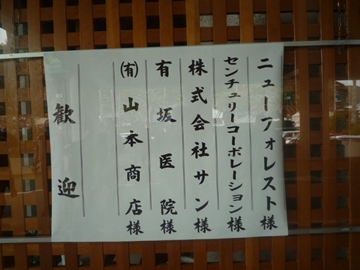 ニューフォレスト様
センチュリーコーポレーション様
株式会社サン様
有坂医院様
(有)山本商店様
歓迎